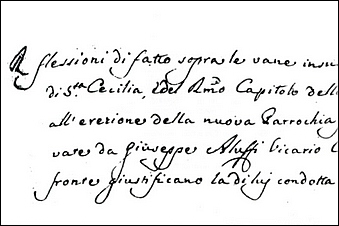 Riflessioni di fatto sopra le vane insu
di S.ta Cecilia, e del Rmo Capitolo dell
all'erezione della nuova Parrochia
vare da Giuseppe Aluffi Vicario
fronte giustificano la di lui condotta